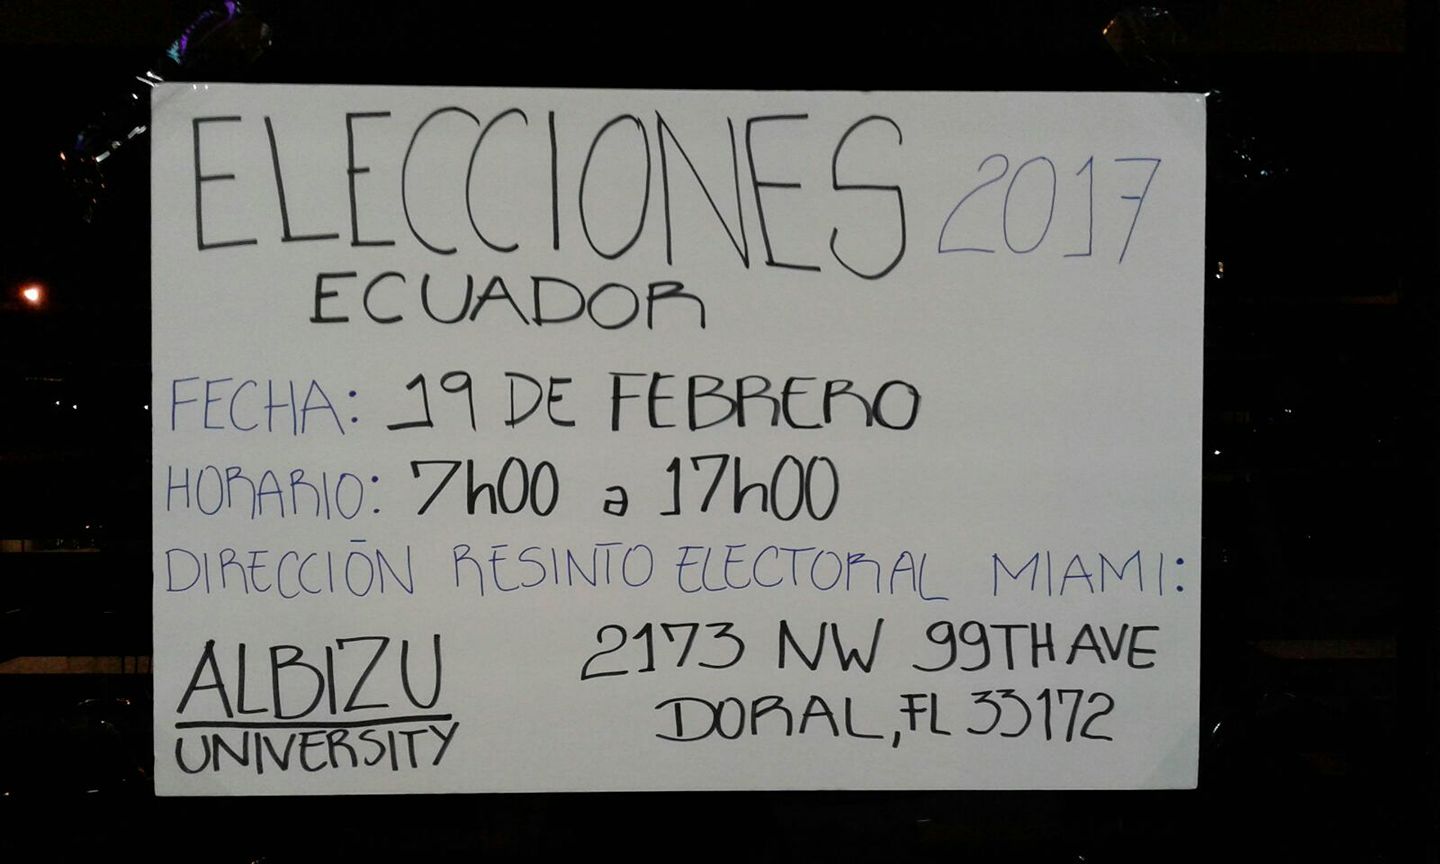 ELECCIONES 2017
ECUADOR
FECHA: 19 DE FEBRERO
HORARIO: 7h00 a 17h00
DIRECCIÓN RESINTO ELECTORAL MIAMI:
ALBIZU
UNIVERSITY
2173 NW 99TH AVE
DORAL, FL 33172